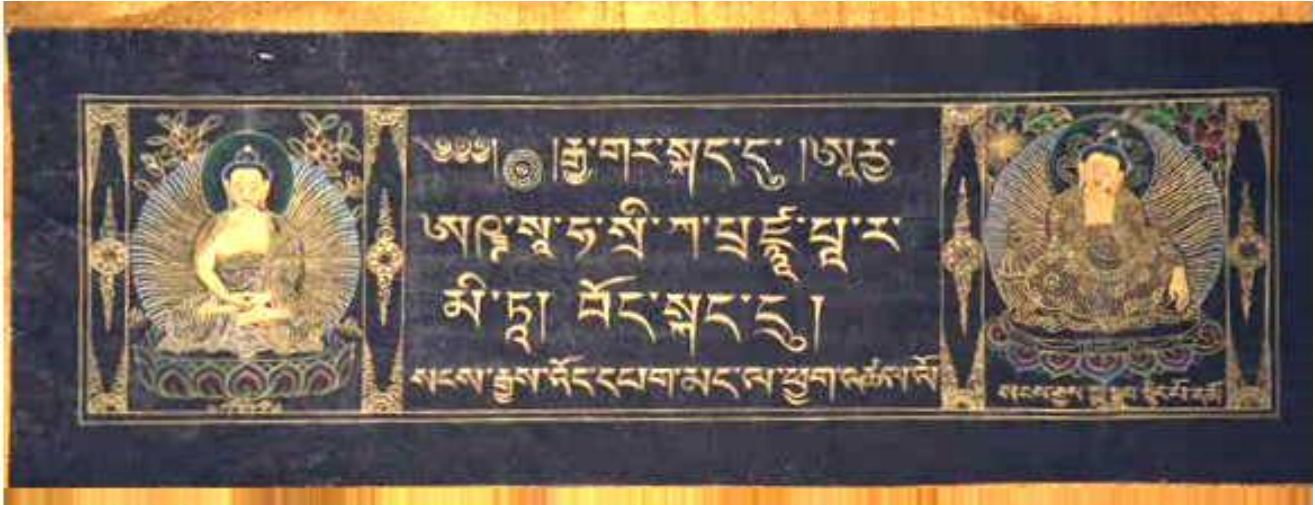 ༄༅༅། ། རྒྱ་གར་སྐད་དུ་ །ཨཱརྱ་
ཨཥྚ་སཱ་ཧ་སྲི་ཀ་པྲ་ཛྙཱ་པཱ་ར་
མི་ཏཱ། བོད་སྐད་དུ །
སངས་རྒྱས་འོད་དཔག་མེད་ལ་ཕྱག་འཚལ་ལོ
སངས་རྒྱས་